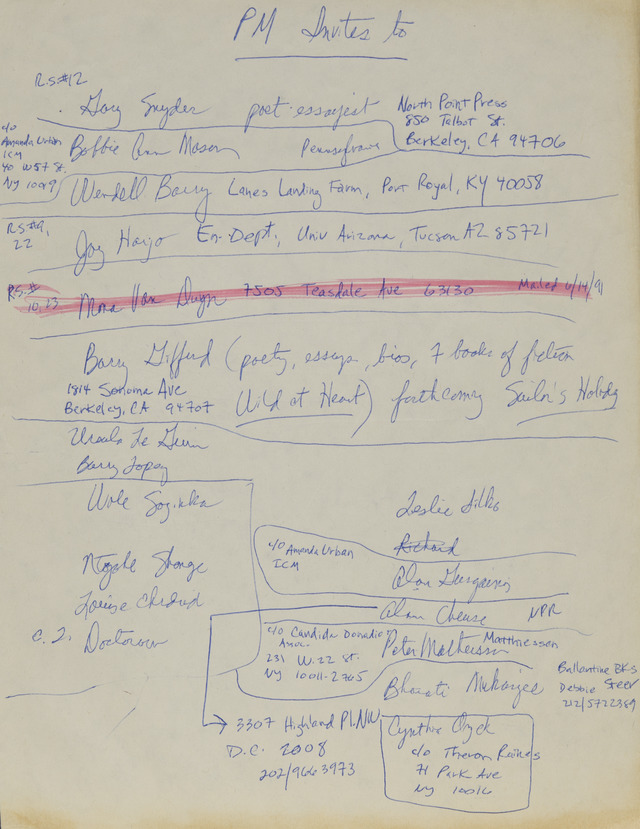 PM Invites to
R.S.#12
Gary Snyder poet-essayist
North Point Press
850 Talbot St.
Berkeley, CA 94706
c/o
Amanda Urban
ICM
40 W 57 St.
NY 10019
Bobbie Ann Mason Pennsylvania
Wendell Barry Lanes Landing Farm, Port Royal, KY 40058
RS#9,
22
Joy Harjo En. Dept., Univ Arizona, Tucson AZ 85721
RS.#
10, 23
Mona Van Duyn 7505 Teasdale Ave 63130 Mailed 6/14/91
Barry Gifford (poetry, essays, bios, 7 books of fiction
1814 Sonoma Ave
Berkeley, CA 94707
Wild at Heart) forthcoming Sailor's Holiday
Ursula Le Guin
Barry Lopez
Wole Soyinka
Ntozake Shange
Louise Erdrich
Doctorow
Leslie Silko
Richard
c/o Amanda Urban
ICM
Alan Gurganis
Alan Cheuse NPR
c/o Candida Donadio
Assoc.
231 W. 22 St.
NY 10011-2765
Peter Matheisson Matthiessen
Bharati Mukarjee
Ballantine BKs
Debbie
212/5722389
3307 Highland Pl. NW
D.C. 2008
202/9663973
Cynthia Ozick
c/o Theron Raines
71 Park Ave
NY 10016